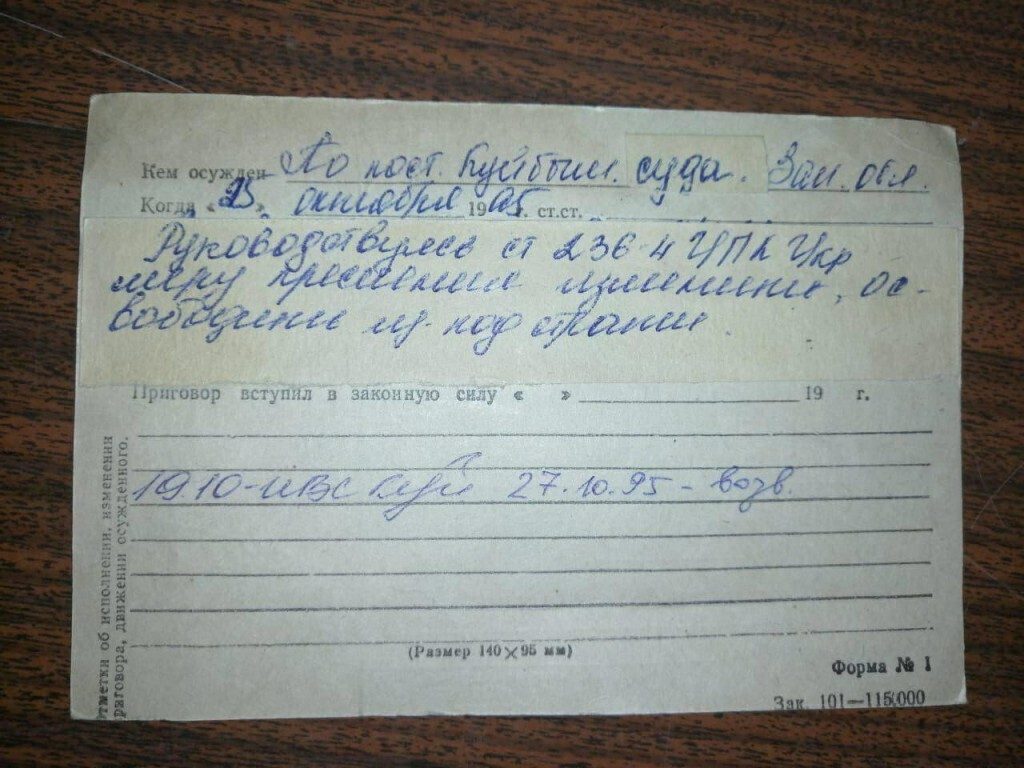 Кем осужден По пост. Куйбыш. суда. Зап. обл.
Когда « 25 » октября 1995 г. ст.ст.
Руководствуясь ст 236-4 УПК Укр
меру пресечения изменить, ос-
вободить из-под стражи.
Приговор вступил в законную силу « » 19 г.
1910-ИВС Куй 27.10.95 - возв.
Отметки об исполнении, изменении
приговора, движении осужденного.
(Размер 140×95 мм)
Форма № 1
Зак. 101—115000